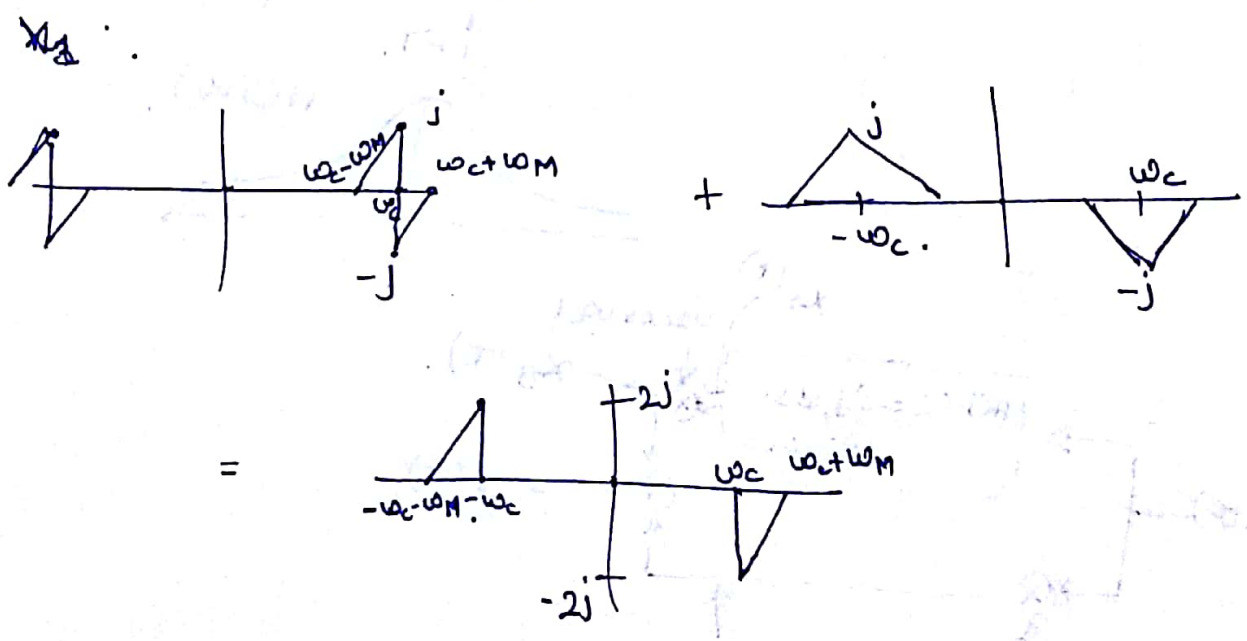 j
ω_c-ω_M
ω_c+ω_M
ω_c
-j
+
j
-ω_c.
ω_c
-j
=
2j
-ω_c-ω_M
-ω_c
ω_c
ω_c+ω_M
-2j